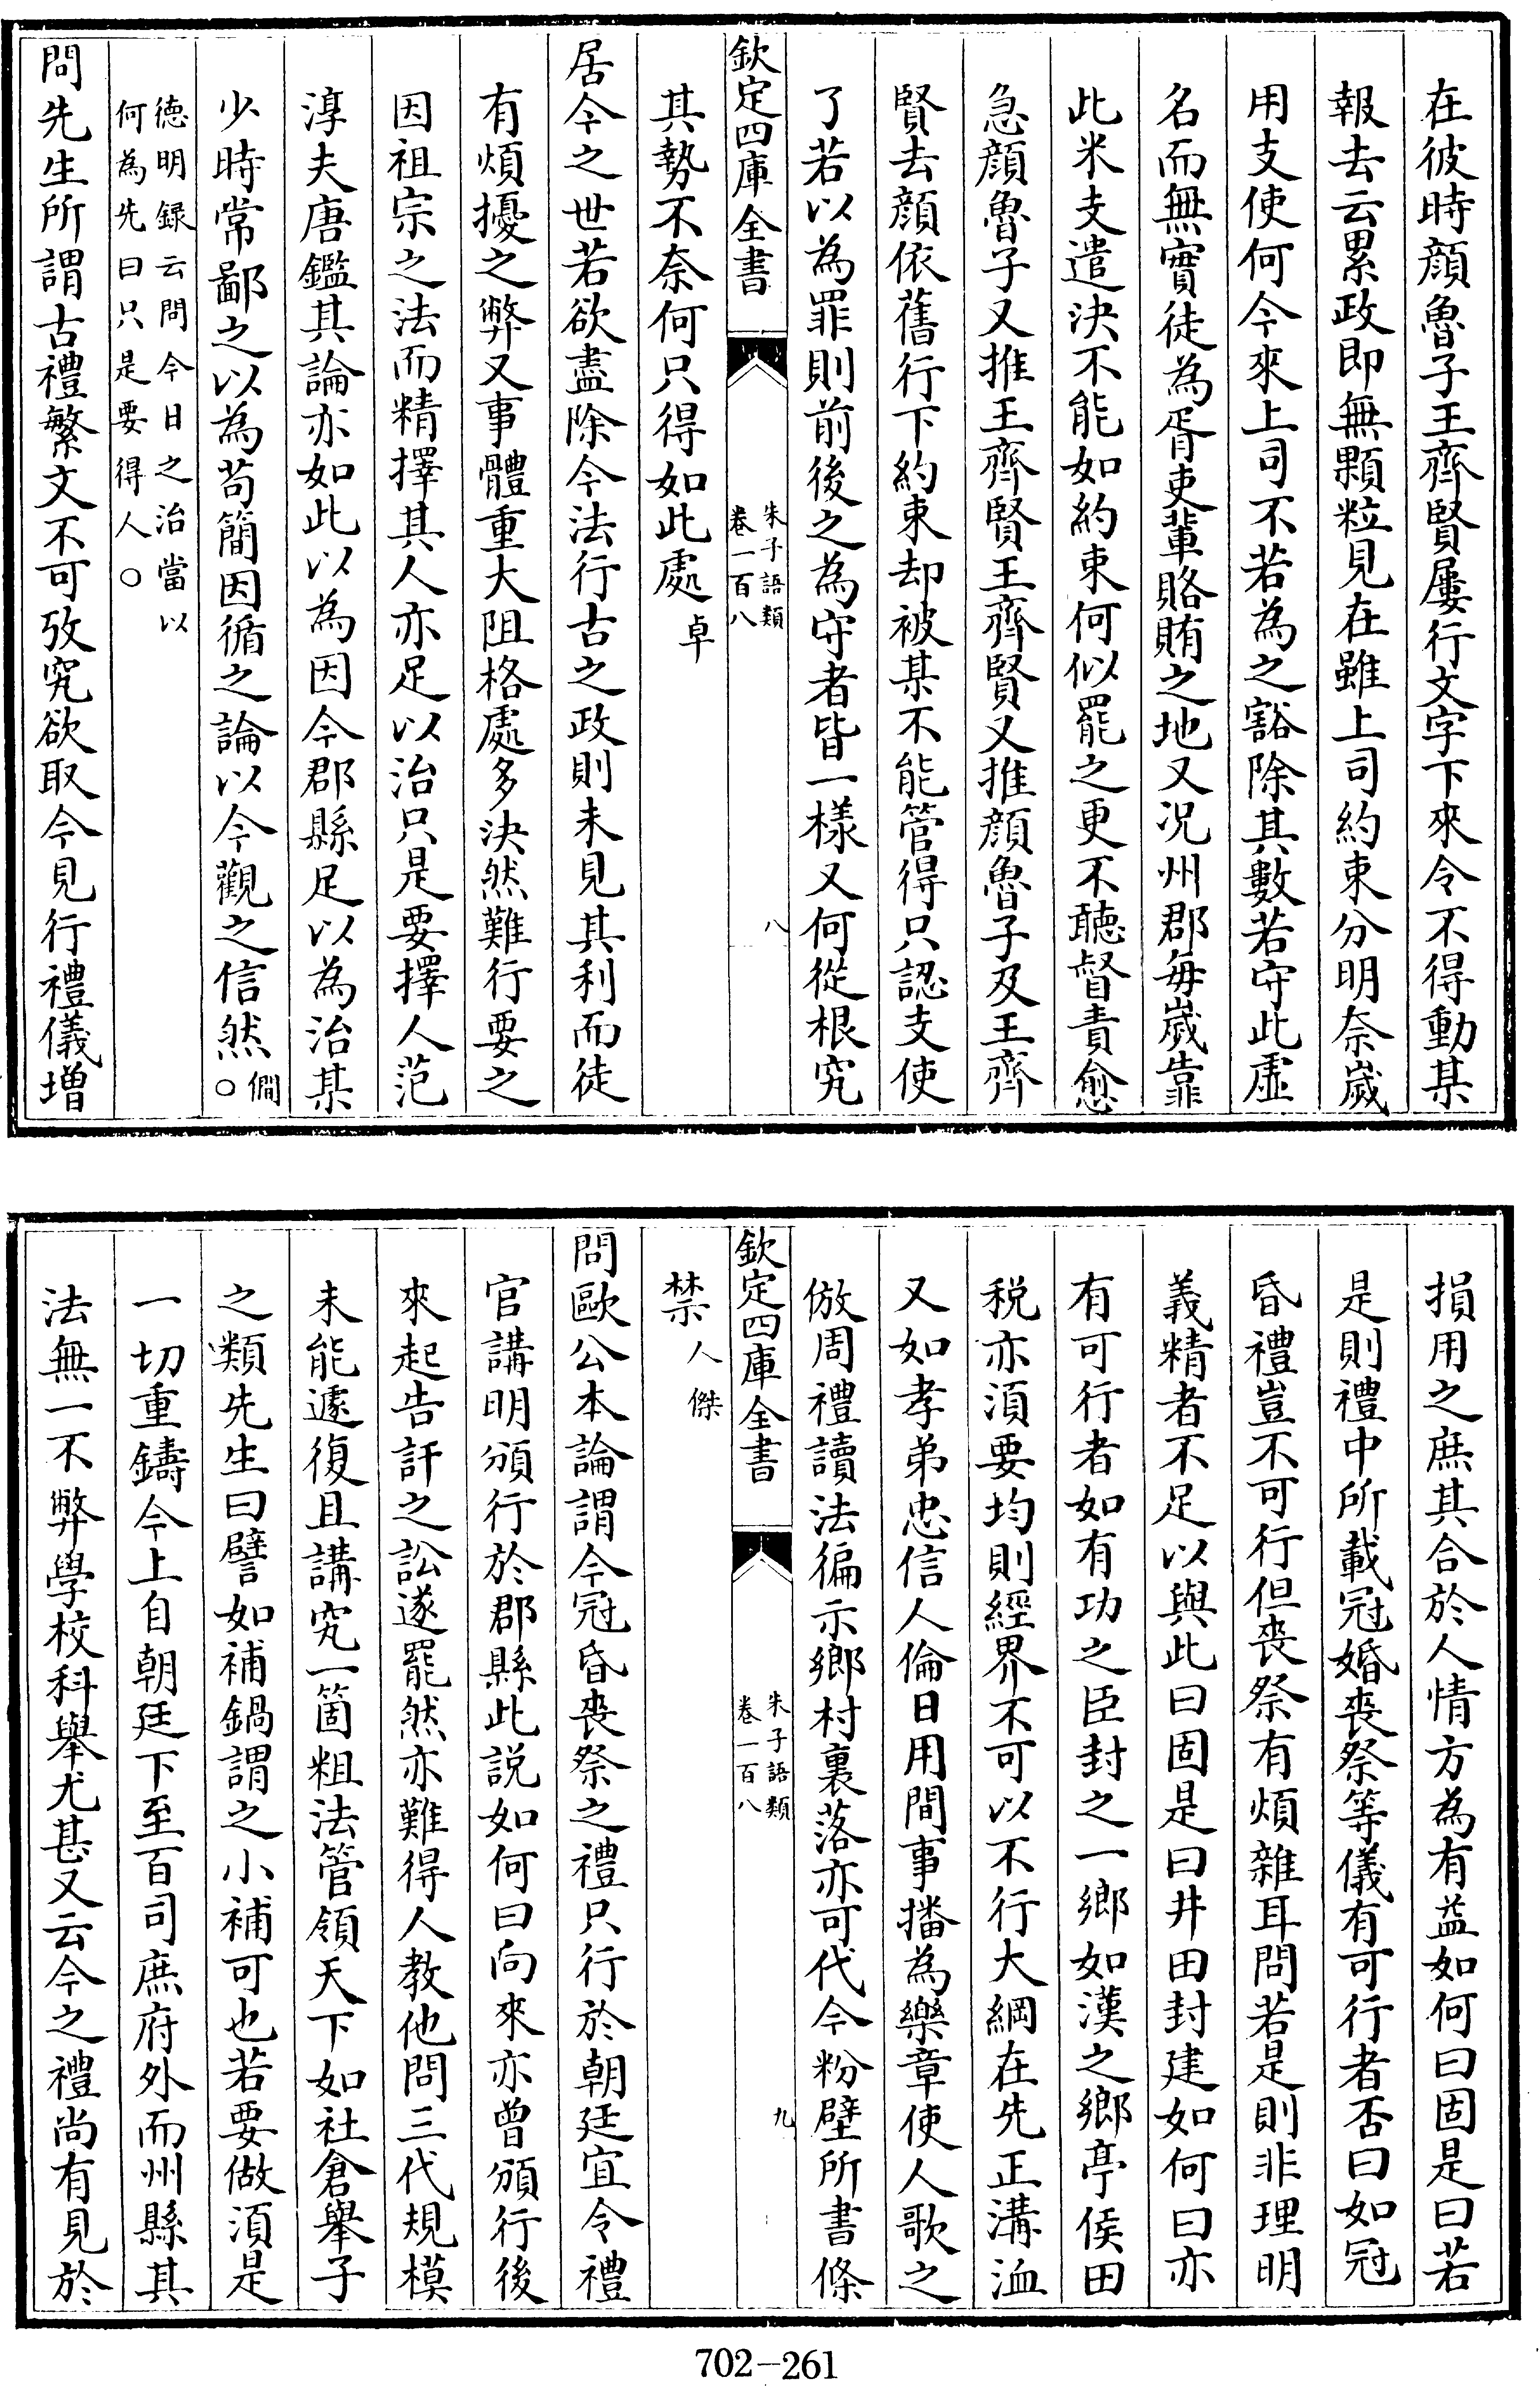 在彼時顔魯子王齊賢屢行文字下來令不得動某
報去云累政即無顆粒見在雖上司約束分明奈歲
用支使何今來上司不若為之豁除其數若守此虛
名而無實徒為胥吏輩賂賄之地又况州郡每歲靠
此米支遣決不能如約束何似罷之更不聽督責愈
急顔魯子又推王齊賢王齊賢又推顔魯子及王齊
賢去顔依舊行下約束却被某不能管得只認支使
了若以為罪則前後之為守者皆一樣又何從根究
欽定四庫全書
朱子語類
卷一百八
八
其勢不奈何只得如此處卓
居今之世若欲盡除今法行古之政則未見其利而徒
有煩擾之弊又事體重大阻格處多決然難行要之
因祖宗之法而精擇其人亦足以治只是要擇人范
淳夫唐鑑其論亦如此以為因今郡縣足以為治某
少時常鄙之以為苟簡因循之論以今觀之信然僩○
德明録云問今日之治當以
何為先曰只是要得人○
問先生所謂古禮繁文不可攷究欲取今見行禮儀增
損用之庶其合於人情方為有益如何曰固是曰若
是則禮中所載冠婚喪祭等儀有可行者否曰如冠
昏禮豈不可行但喪祭有煩雜耳問若是則非理明
義精者不足以與此曰固是曰井田封建如何曰亦
有可行者如有功之臣封之一鄉如漢之鄉亭侯田
税亦須要均則經界不可以不行大綱在先正溝洫
又如孝弟忠信人倫日用間事播為樂章使人歌之
倣周禮讀法徧示鄉村裏落亦可代今粉壁所書條
欽定四庫全書
朱子語類
卷一百八
九
禁人傑
問歐公本論謂今冠昏喪祭之禮只行於朝廷宜令禮
官講明頒行於郡縣此説如何曰向來亦曾頒行後
來起告訐之訟遂罷然亦難得人教他問三代規模
未能遽復且講究一箇粗法管領天下如社倉舉子
之類先生曰譬如補鍋謂之小補可也若要做須是
一切重鑄今上自朝廷下至百司庶府外而州縣其
法無一不弊學校科舉尤甚又云今之禮尚有見於
702-261